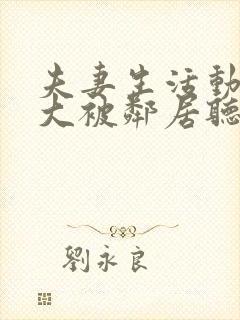 夫妻生活動
大被鄰居聽
劉永良